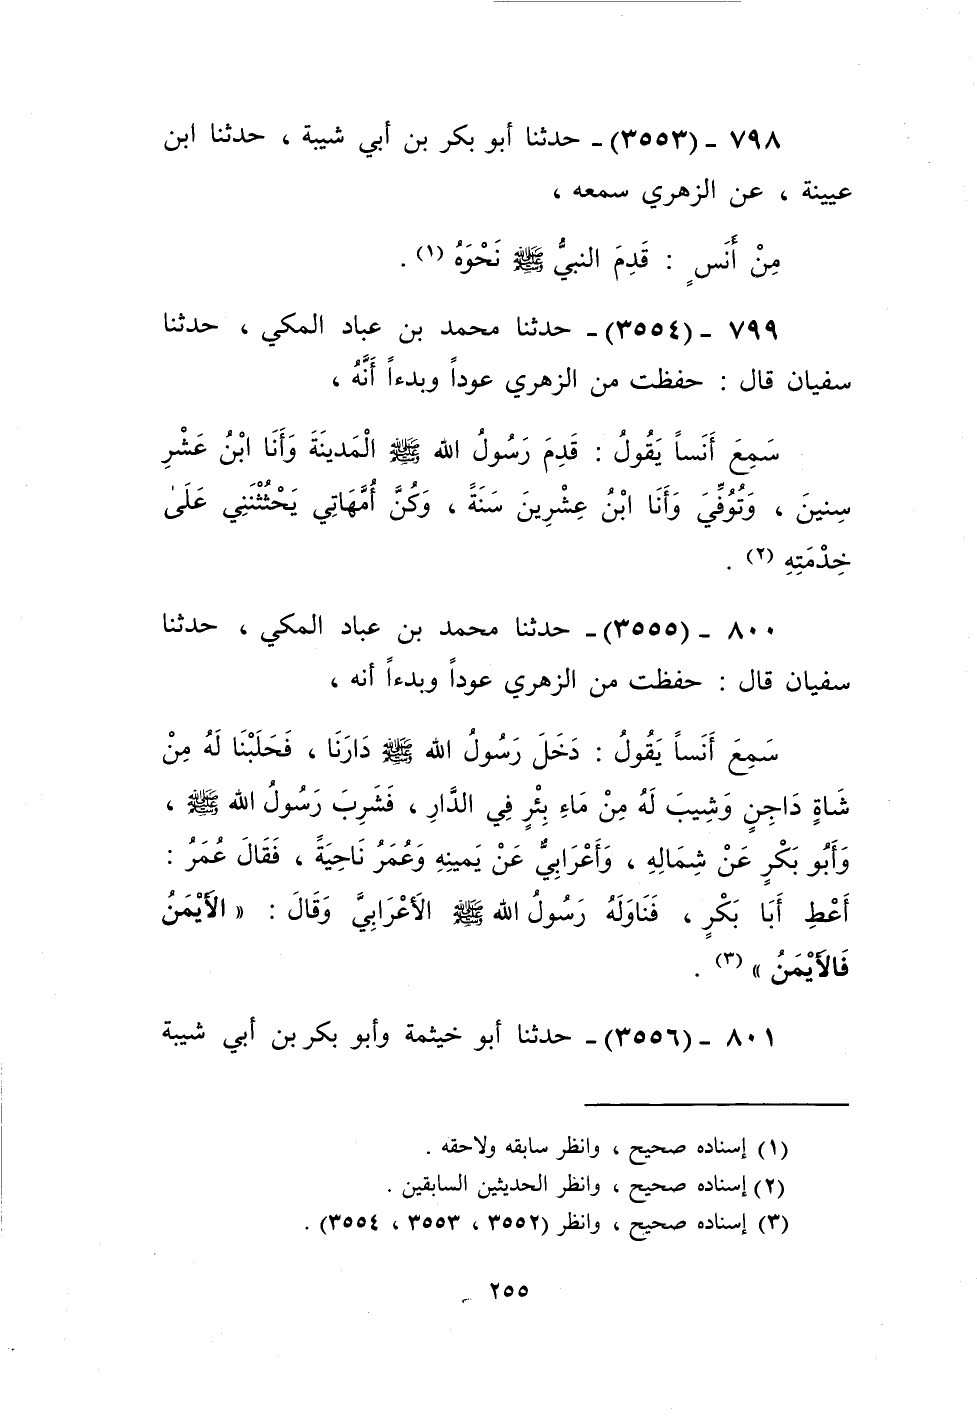 ٧٩٨ ـ (٣٥٥٣)ـ حدثنا أبو بكر بن أبي شيبة ، حدثنا ابن
عيينة ، عن الزهري سمعه ،
مِنْ أَنَسٍ : قَدِمَ النبيُّ ﷺ نَحْوَهُ (١) .
٧٩٩ ـ (٣٥٥٤)ـ حدثنا محمد بن عباد المكي ، حدثنا
سفيان قال : حفظت من الزهري عوداً وبدءاً أَنَّهُ ،
سَمِعَ أَنَساً يَقُولُ : قَدِمَ رَسُولُ الله ﷺ الْمَدينَةَ وَأَنَا ابْنُ عَشْرِ
سِنينَ ، وَتُوُفِّيَ وَأَنَا ابْنُ عِشْرِينَ سَنَةً ، وَكُنَّ أُمَّهَاتِي يَحْثُثْنَنِي عَلَىٰ
خِدْمَتِهِ (٢) .
٨٠٠ ـ (٣٥٥٥)ـ حدثنا محمد بن عباد المكي ، حدثنا
سفيان قال : حفظت من الزهري عوداً وبدءاً أنه ،
سَمِعَ أَنَساً يَقُولُ : دَخَلَ رَسُولُ الله ﷺ دَارَنَا ، فَحَلَبْنَا لَهُ مِنْ
شَاةٍ دَاجِنٍ وَشِيبَ لَهُ مِنْ مَاءِ بِئْرٍ فِي الدَّارِ ، فَشَرِبَ رَسُولُ الله ﷺ ،
وَأَبُو بَكْرٍ عَنْ شِمَالِهِ ، وَأَعْرَابِيٌّ عَنْ يَمينِهِ وَعُمَرُ نَاحِيَةً ، فَقَالَ عُمَرُ :
أَعْطِ أَبَا بَكْرٍ ، فَنَاوَلَهُ رَسُولُ الله ﷺ الأَعْرَابِيَّ وَقَالَ : « الأَيْمَنُ
فَالأَيْمَنُ » (٣) .
٨٠١ ـ (٣٥٥٦)ـ حدثنا أبو خيثمة وأبو بكر بن أبي شيبة
(١) إسناده صحيح ، وانظر سابقه ولاحقه .
(٢) إسناده صحيح ، وانظر الحديثين السابقين .
(٣) إسناده صحيح ، وانظر (٣٥٥٢ ، ٣٥٥٣ ، ٣٥٥٤) .
٢٥٥